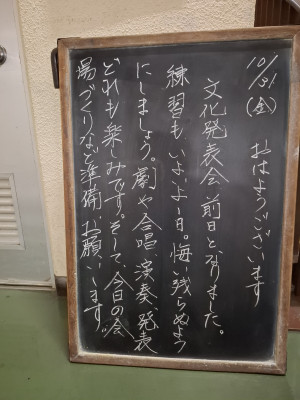 10/31(金) おはようございます
文化発表会前日となりました。
練習もいよいよ一日。悔い残らぬよう
にしましょう。劇や合唱、演奏、発表
どれも楽しみです。そして、今日の会
場づくりなど準備、お願いします。